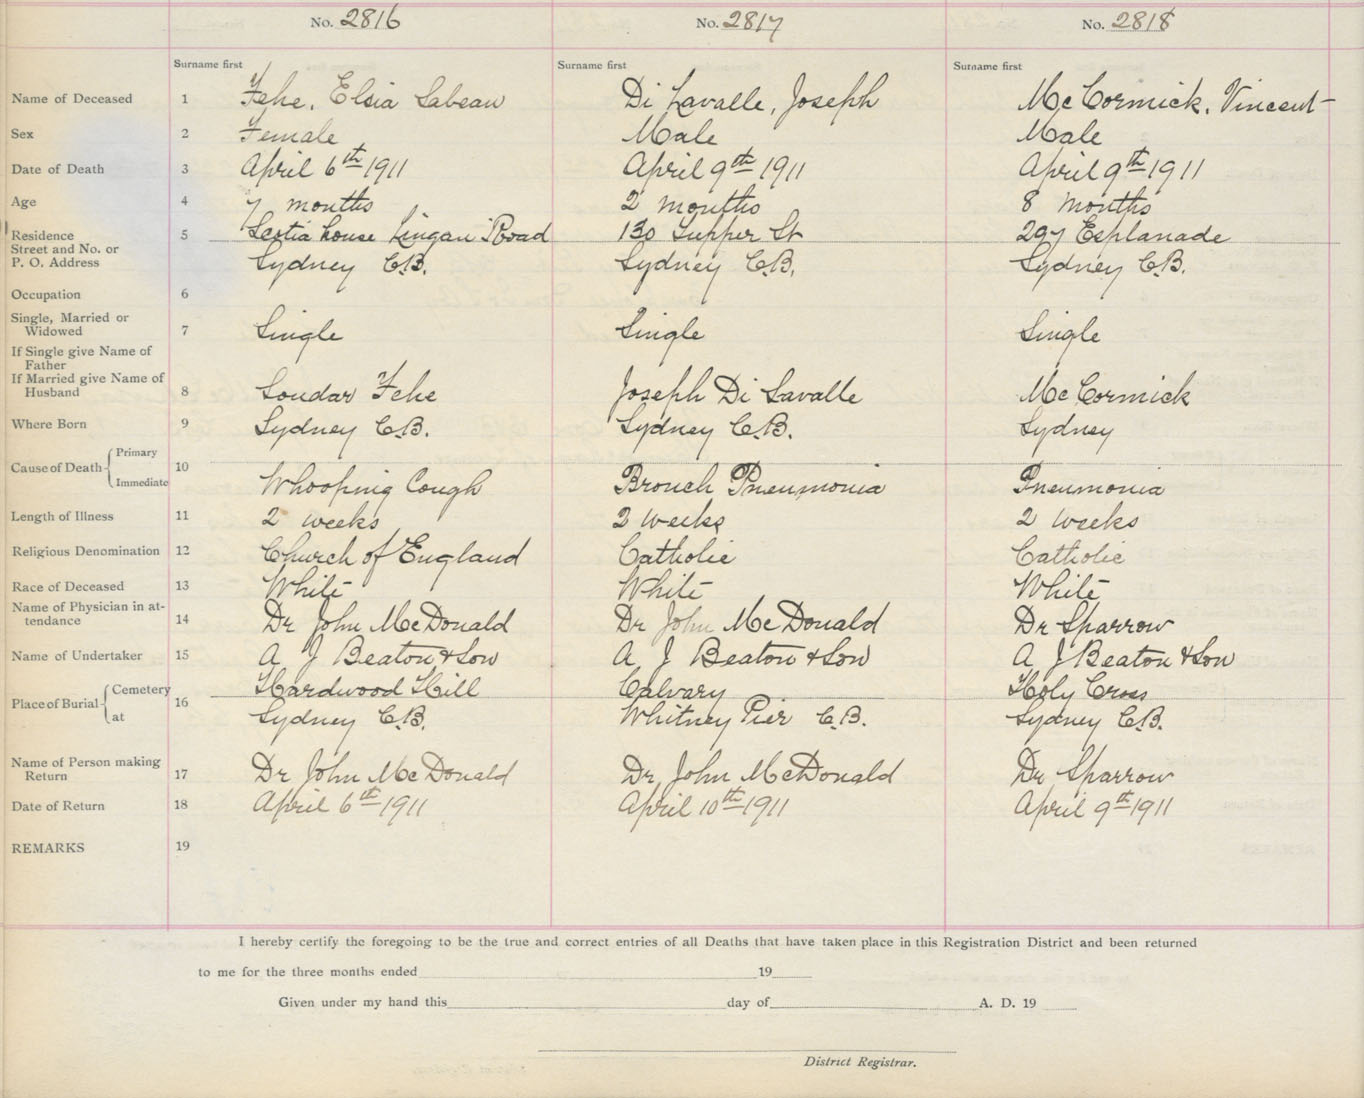 No. 2816 No. 2817 No. 2818
Surname first Surname first Surname first
Name of Deceased 1 Fehe, Elsia Sabeau Di Lavalle, Joseph McCormick, Vincent
Sex 2 Female Male Male
Date of Death 3 April 6th 1911 April 9th 1911 April 9th 1911
Age 4 7 months 2 months 8 months
Residence 5 Scotia house Lingan Road 130 Tupper St 297 Esplanade
Street and No. or
P. O. Address Sydney C.B. Sydney C.B. Sydney C.B.
Occupation 6
Single, Married or
Widowed 7 Single Single Single
If Single give Name of
Father
If Married give Name of
Husband 8 Soudar Fehe Joseph Di Lavalle McCormick
Where Born 9 Sydney C.B. Sydney C.B. Sydney
Cause of Death Primary
10
Immediate Whooping Cough Bronch Pneumonia Pneumonia
Length of Illness 11 2 weeks 2 weeks 2 weeks
Religious Denomination 12 Church of England Catholic Catholic
Race of Deceased 13 White White White
Name of Physician in at-
tendance 14 Dr John McDonald Dr John McDonald Dr Sparrow
Name of Undertaker 15 A J Beaton & Son A J Beaton & Son A J Beaton & Son
Place of Burial Cemetery 16 Hardwood Hill Calvary Holy Cross
at Sydney C.B. Whitney Pier C.B. Sydney C.B.
Name of Person making
Return 17 Dr John McDonald Dr John McDonald Dr Sparrow
Date of Return 18 April 6th 1911 April 10th 1911 April 9th 1911
REMARKS 19
I hereby certify the foregoing to be the true and correct entries of all Deaths that have taken place in this Registration District and been returned
to me for the three months ended 19
Given under my hand this day of A. D. 19
District Registrar.